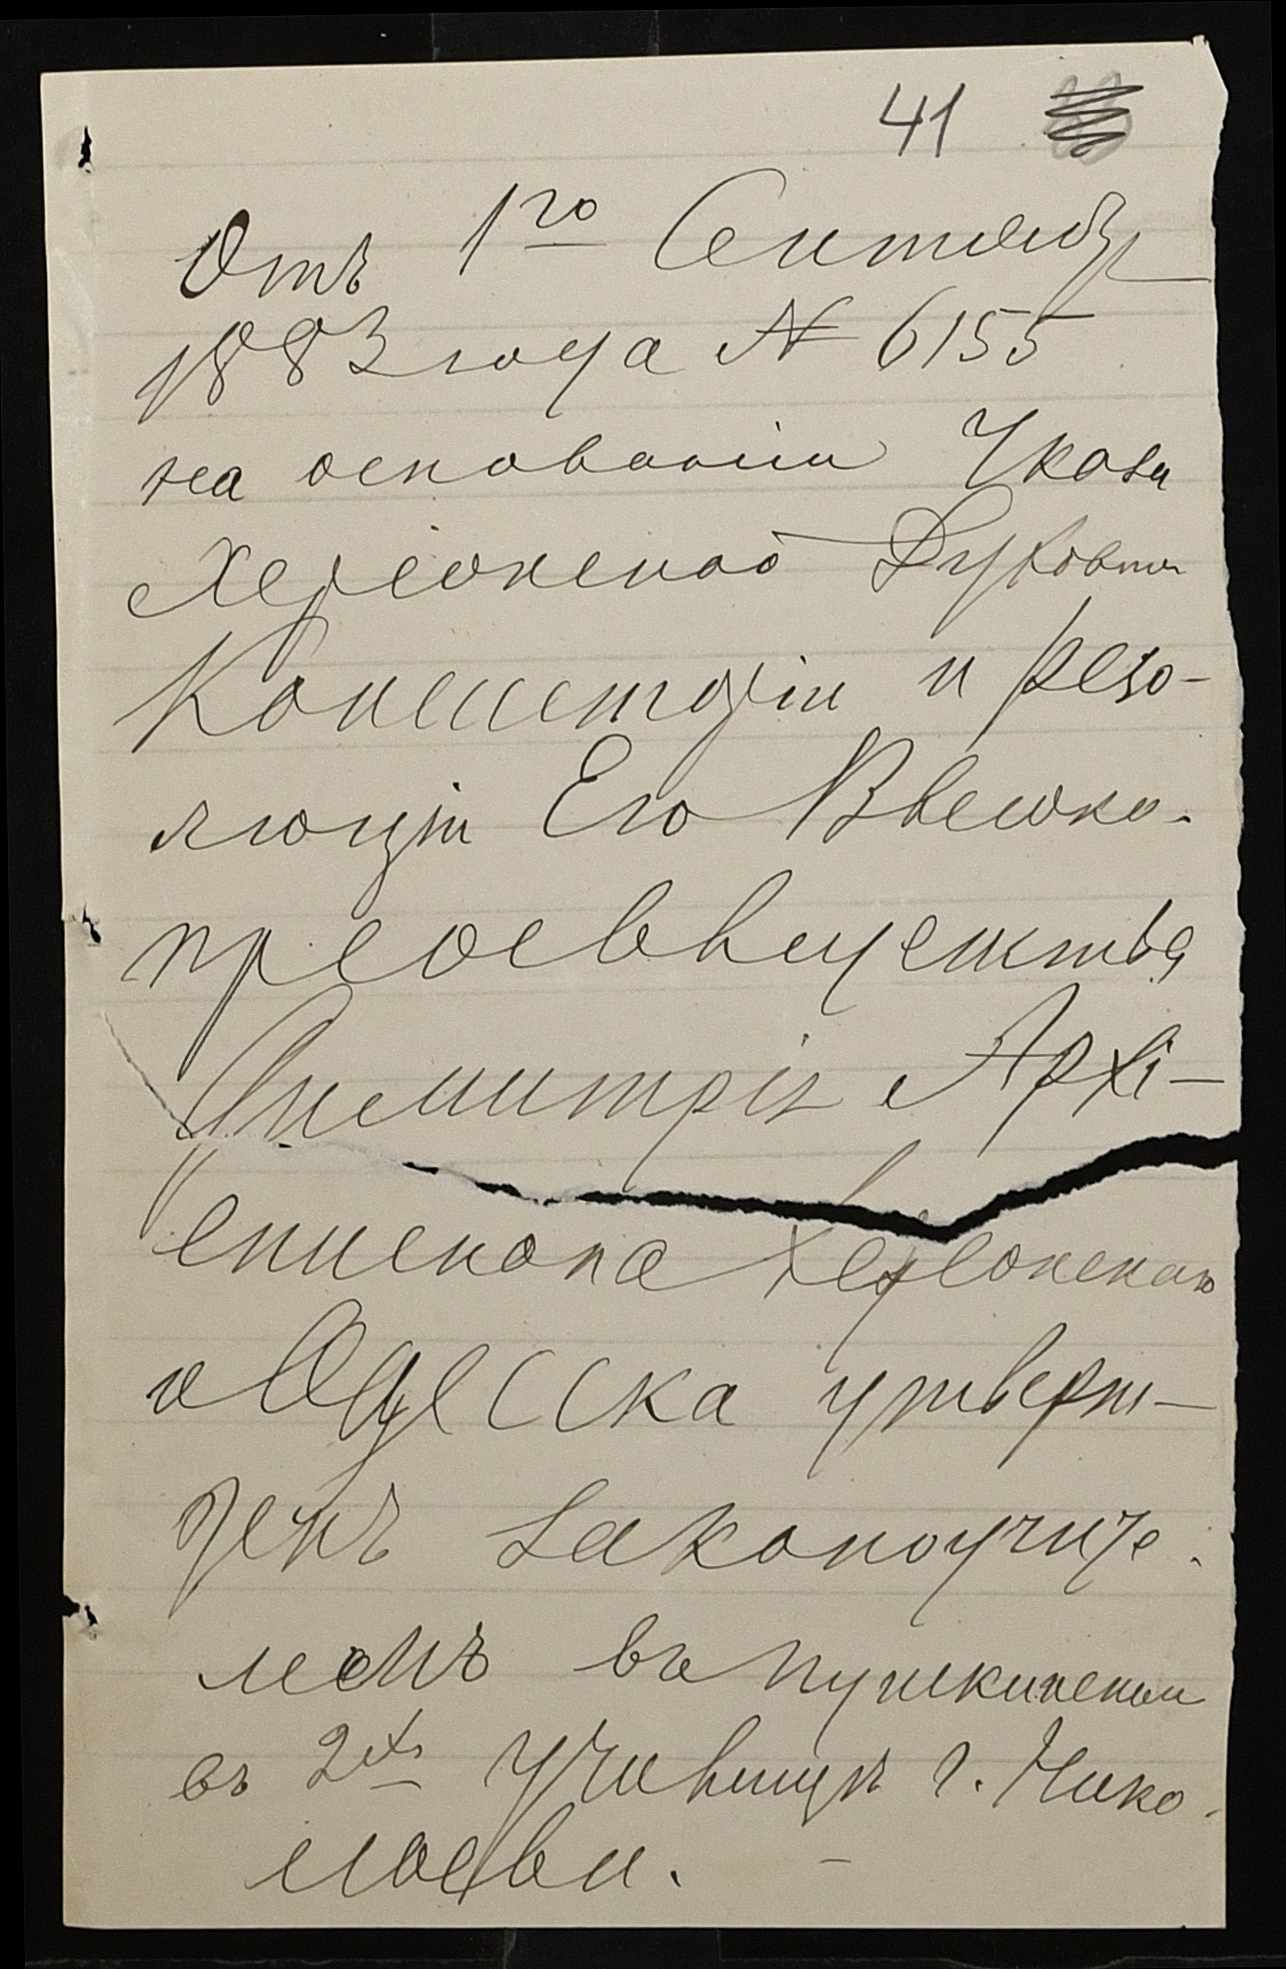 41
Отъ 1го Сентября
1883 года № 6155
на основаніи Указа
Херсонской Духовной
Консисторіи и резо-
люціи Его Высоко-
преосвященства
Димитрія Архі-
епископа Херсонскаго
и Одесска утверж-
денъ Законоучите-
лемъ въ Пушкинском
въ 2хъ Училищѣ г. Нико-
лаева.